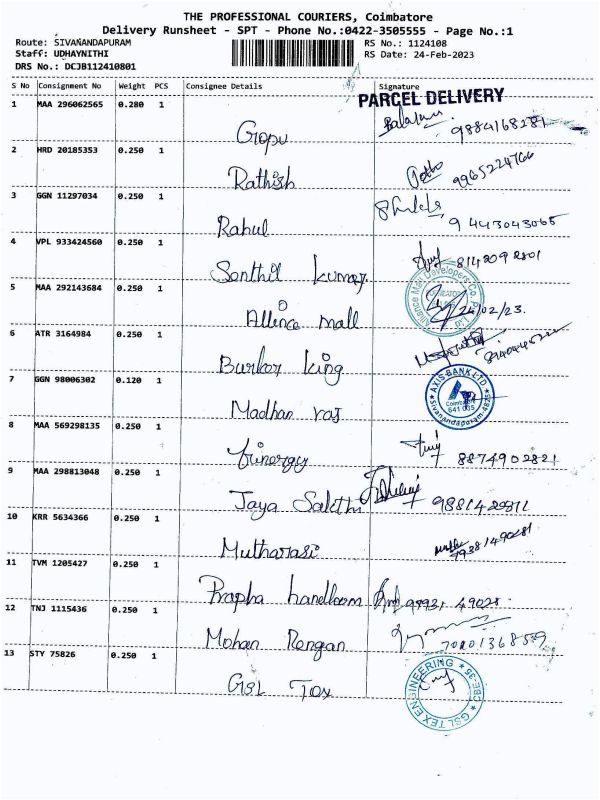 THE PROFESSIONAL COURIERS, Coimbatore
Delivery Runsheet - SPT - Phone No.:0422-3505555 - Page No.:1
Route: SIVANANDAPURAM RS No.: 1124108
Staff: UDHAYNITHI RS Date: 24-Feb-2023
DRS No.: DCJB112410801
S No Consignment No Weight PCS Consignee Details Signature
PARCEL DELIVERY
1 MAA 296062565 0.280 1
Gopu 9884168281
2 HRD 20185353 0.250 1
Rathish 9965224766
3 GGN 11297034 0.250 1
Rahul 9443043065
4 VPL 933424560 0.250 1
Santhil kumar 8142092801
5 MAA 292143684 0.250 1
Allince mall 24/02/23.
Alliance Mall Developers Co.
6 ATR 3164984 0.250 1
Burker king
7 GGN 98006302 0.120 1
Madhan raj
AXIS BANK LTD. Coimbatore 641 035 Sivanandapuram-4825
8 MAA 569298135 0.250 1
Trinergy 8874902821
9 MAA 298813048 0.250 1
Jaya Sakthi
10 KRR 5634366 0.250 1
Mutharasi 79381490281
11 TVM 1205427 0.250 1
Prapha handloom
12 TNJ 1115436 0.250 1
Mohan Rengan
13 STY 75826 0.250 1
GSL Tex
GSL TEX ENGINEERING * CBE-35 *